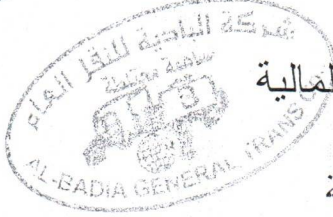 شركة البادية للنقل العام
مساهمة مختلطة
AL-BADIA GENERAL TRANS CO
لمالية